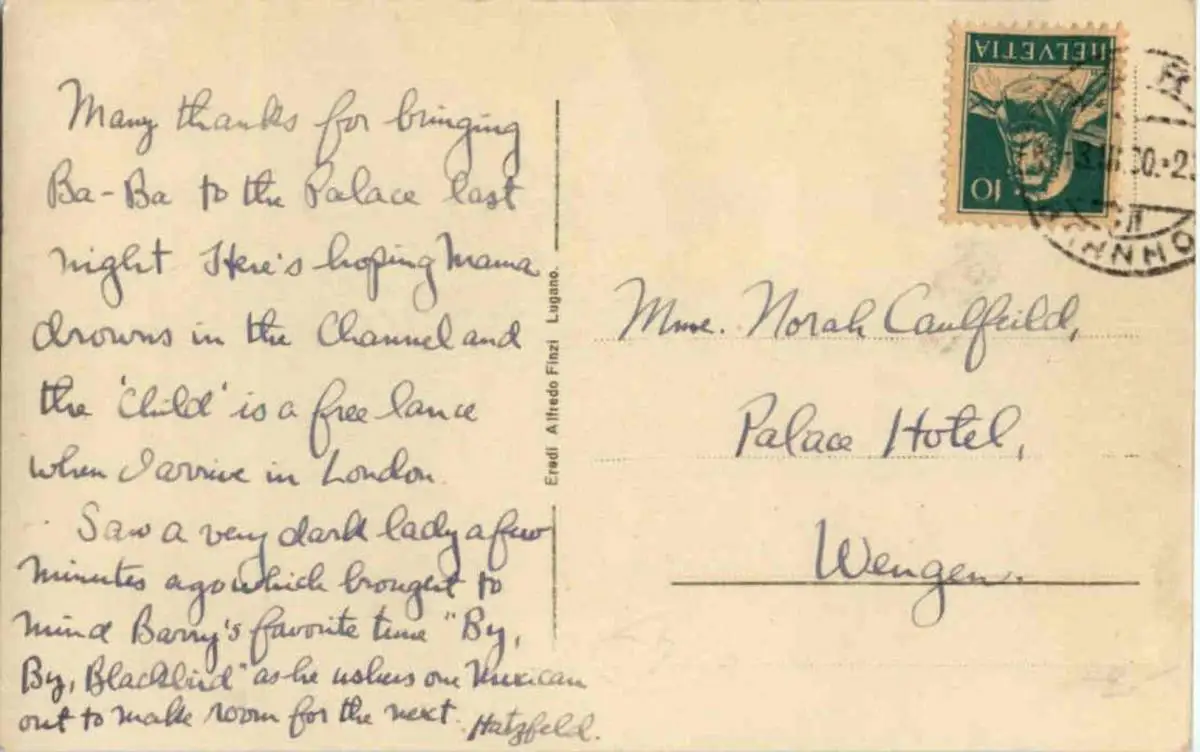 Many thanks for bringing
Ba-Ba to the Palace last
night. Here's hoping Mama
drowns in the Channel and
the 'child' is a free lance
when I arrive in London.
Saw a very dark lady a few
minutes ago which brought to
mind Barry's favorite tune "By,
By, Blackbird" as he ushers one Mexican
out to make room for the next. Hatzfeld.
Eredi Alfredo Finzi Lugano.
HELVETIA
10
Mme. Norah Caulfeild,
Palace Hotel,
Wengen.